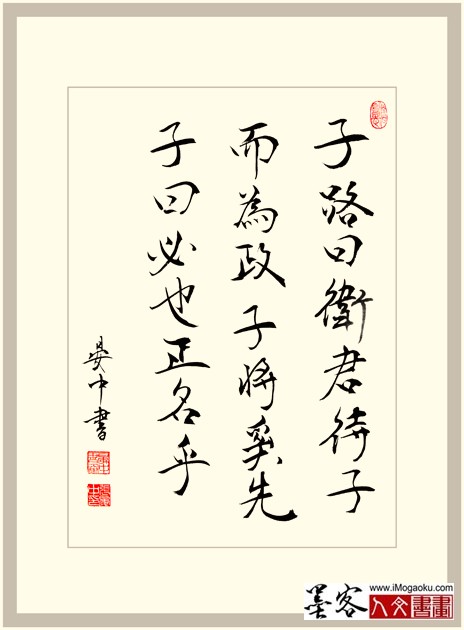 子路曰衛君待子
而為政子將奚先
子曰必也正名乎
晏中書
www.iMogaoku.com
墨客
人文書畫